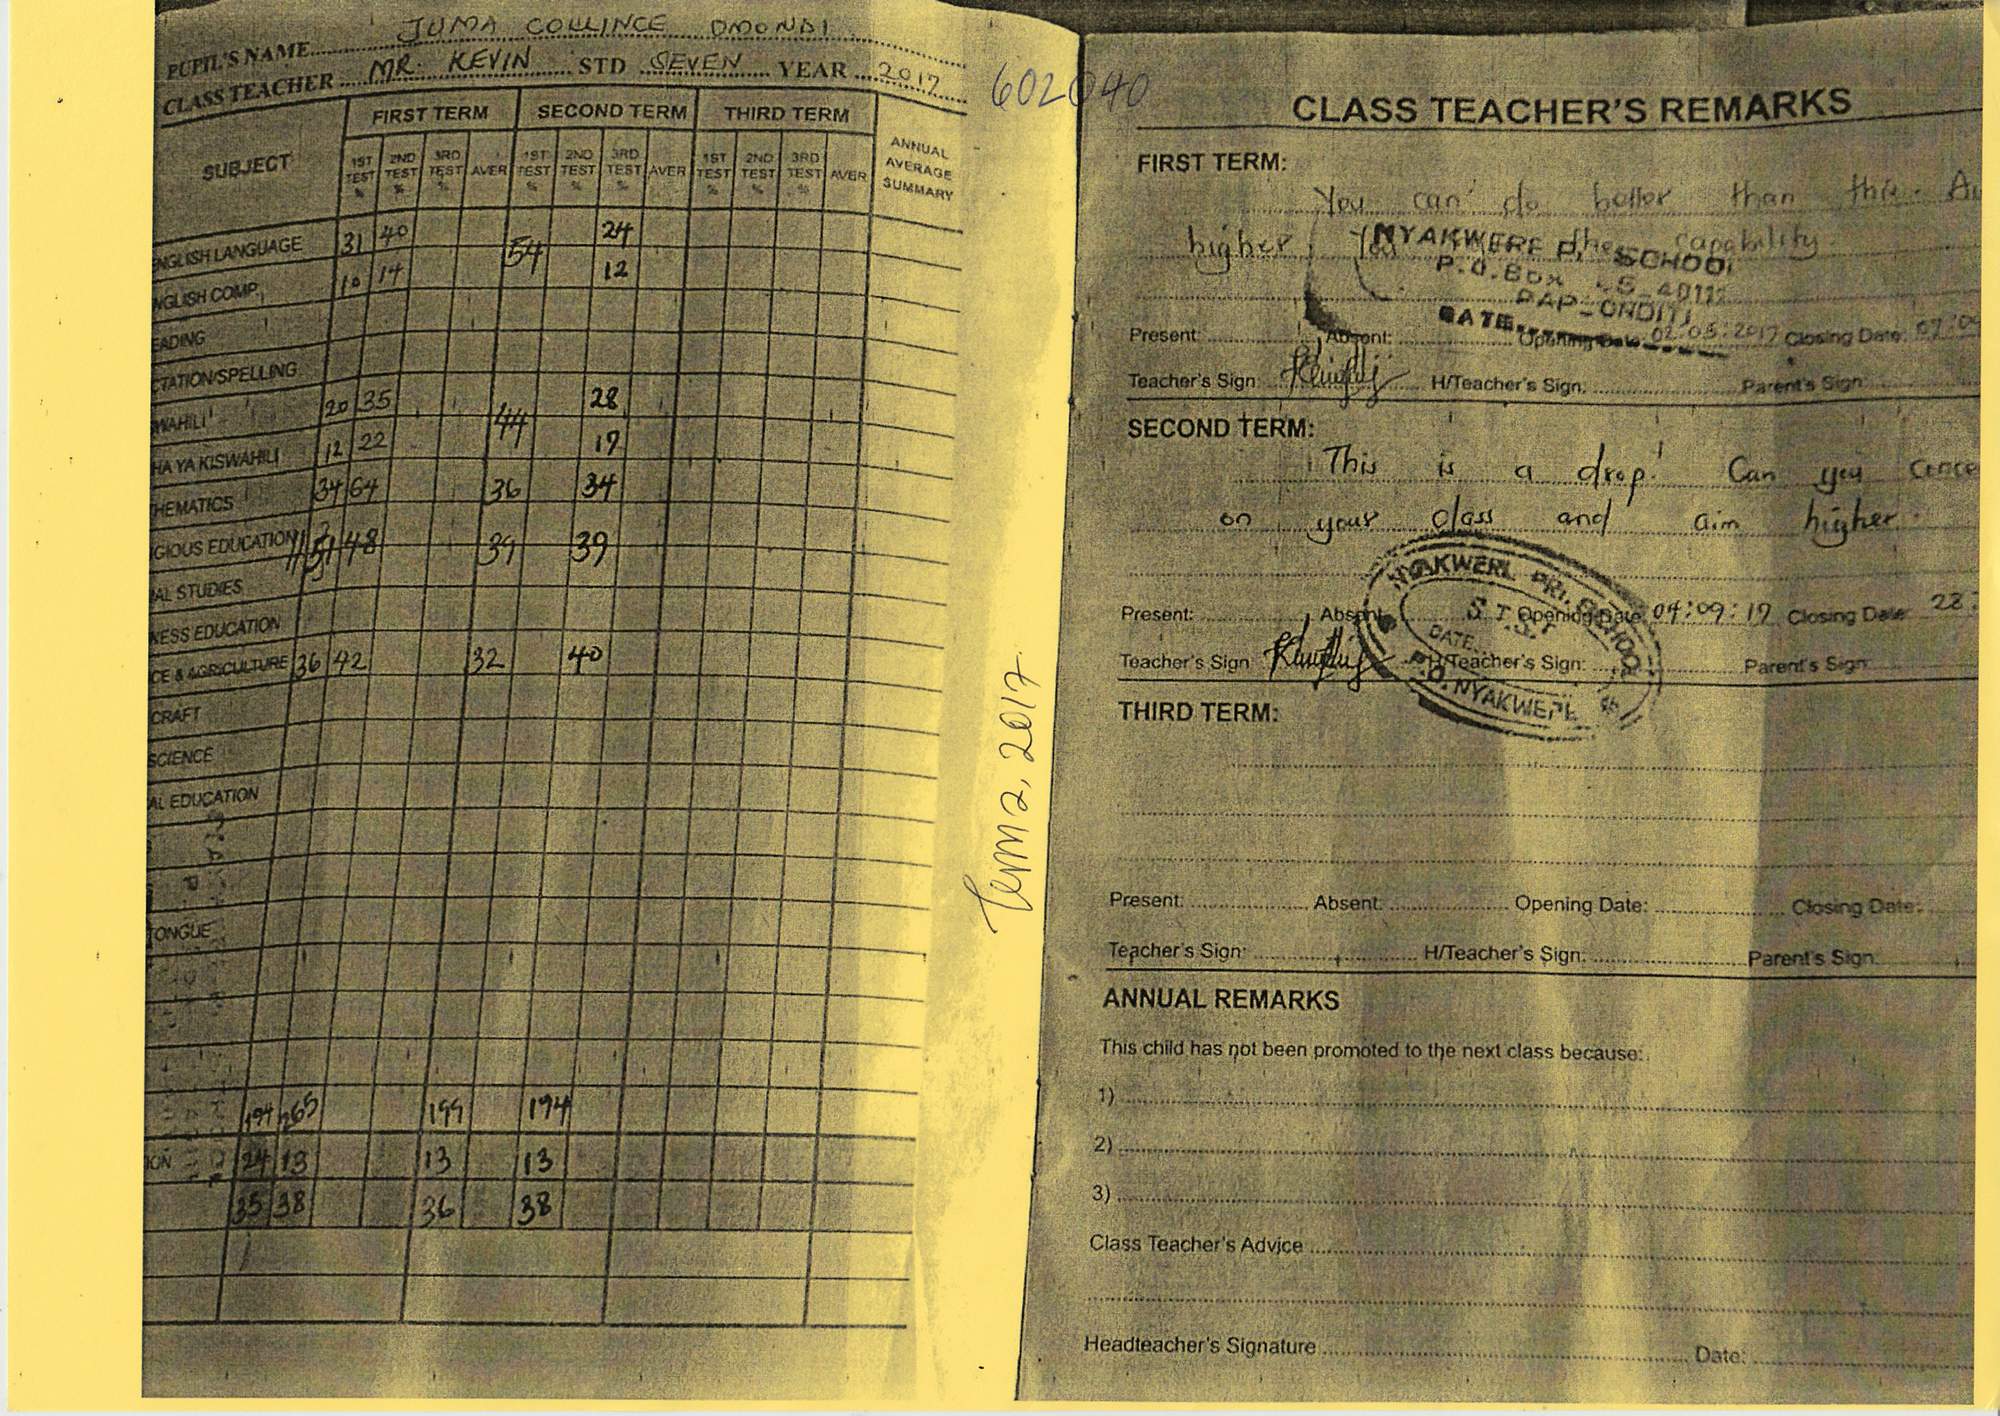 PUPIL'S NAME JUMA COLLINCE OMONDI
CLASS TEACHER MR. KEVIN STD SEVEN YEAR 2017
602040
SUBJECT FIRST TERM SECOND TERM THIRD TERM ANNUAL AVERAGE SUMMARY
1ST TEST % 2ND TEST % 3RD TEST % AVER 1ST TEST % 2ND TEST % 3RD TEST % AVER 1ST TEST % 2ND TEST % 3RD TEST % AVER
NGLISH LANGUAGE 31 40 54 24
NGLISH COMP. 10 14 12
EADING
CTATION/SPELLING
WAHILI 20 35 44 28
HA YA KISWAHILI 12 22 17
HEMATICS 34 64 36 34
GIOUS EDUCATION 51 48 39 39
AL STUDIES
NESS EDUCATION
CE & AGRICULTURE 36 42 32 40
CRAFT
SCIENCE
AL EDUCATION
TONGUE
194 265 199 194
ION 24 13 13 13
35 38 36 38
Term 2, 2017
CLASS TEACHER'S REMARKS
FIRST TERM:
You can do better than this.
higher, You the capability.
NYAKWERE P. SCHOOL
P.O. Box
PAP-ONDITI
DATE
Present: Absent: Opening Date: 02:05:2017 Closing Date:
Teacher's Sign: H/Teacher's Sign: Parent's Sign:
SECOND TERM:
This is a drop! Can you
on your class and aim higher.
NYAKWERE PRI. SCHOOL
DATE
P.O. NYAKWERE
Present: Absent: Opening Date: 04:09:17 Closing Date: 28
Teacher's Sign H/Teacher's Sign: Parent's Sign:
THIRD TERM:
Present: Absent: Opening Date: Closing Date:
Teacher's Sign: H/Teacher's Sign: Parent's Sign:
ANNUAL REMARKS
This child has not been promoted to the next class because:
1)
2)
3)
Class Teacher's Advice
Headteacher's Signature Date: